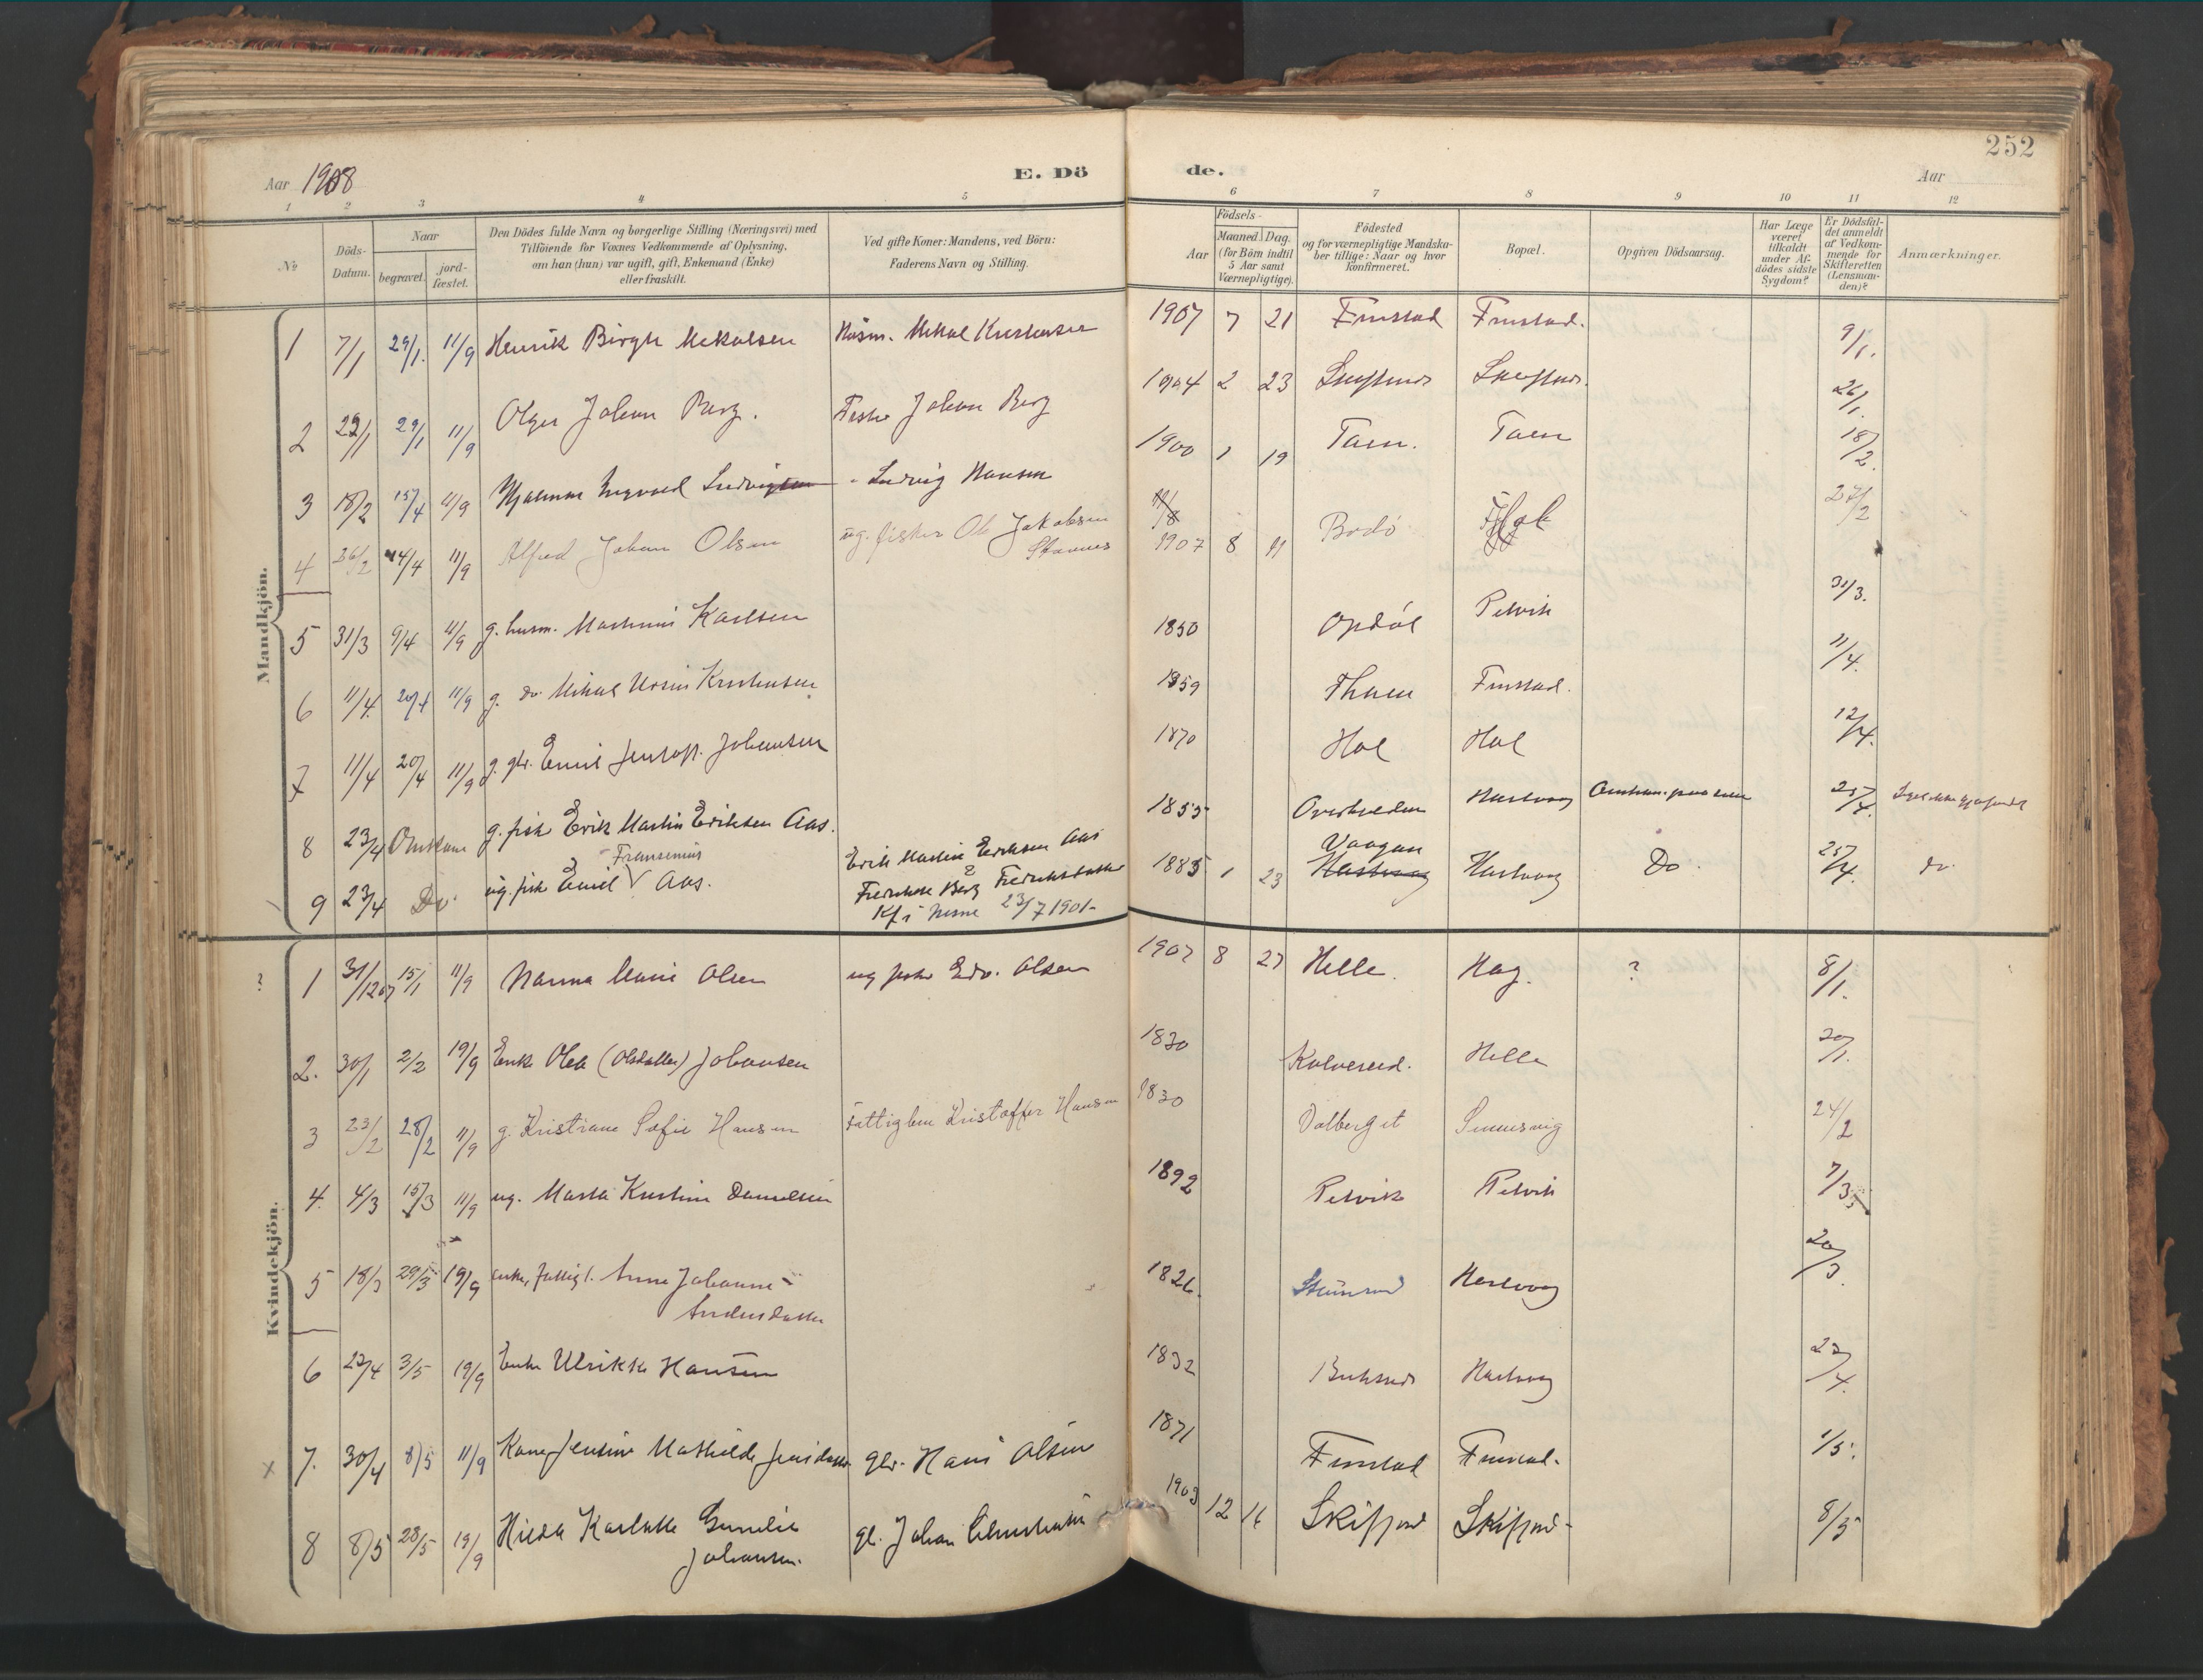 252
Aar 1908
E. Dö
de.
Aar
1 2 3 4 5 6 7 8 9 10 11 12
№
Döds-Datum.
Naar
begravet.
jord-fæstet.
Den Dödes fulde Navn og borgerlige Stilling (Næringsvei) med
Tilföiende for Voxnes Vedkommende af Oplysning,
om han (hun) var ugift, gift, Enkemand (Enke)
eller fraskilt.
Ved gifte Koner: Mandens, ved Börn:
Faderens Navn og Stilling.
Födsels-
Aar
Maaned. Dag.
(for Börn indtil
5 Aar samt
Værnepligtige).
Födested
og for værnepligtige Mandska-
ber tillige: Naar og hvor
konfirmeret.
Bopæl.
Opgiven Dödsaarsag.
Har Læge
været
tilkaldt
under Af-
dödes sidste
Sygdom?
Er Dödsfal-
det anmeldt
af Vedkom-
mende for
Skifteretten
(Lensman-
den)?
Anmærkninger.
Mandkjön.
1 7/1 29/1. 11/9 Henrik Birger Mikalsen Husm. Mikal Kristensen 1907 7 21 Finstad Finstad. 9/1.
2 22/1 29/1 11/9 Olger Johan Berg. Fisker Johan Berg 1904 2 23 26/1.
3 18/2 15/4 11/9 Hjalmar Ingvald Ludvigsen " Ludvig Hansen 1900 1 19 Taen. Taen 18/2.
4 26/2 14/4 11/9 Alfred Johan Olsen ug. fisker Ole Jakobsen Stavnes 1907 8 11 Bodö Hol 27/2
5 31/3 9/4 11/9 g. husm. Martinus Karlsen 1850 Opdöl Petvik 31/3.
6 11/4. 20/4 11/9 g. do. Mikal Ursin Kristensen 1859 Thaen Finstad. 11/4.
7 11/4 20/4 11/9 g. gbr. Emil Jentoft Johansen 1870 Hol Hol 12/4.
8 23/4 Omkom g. fisk Erik Martin Eriksen Aas. 1855 Overhalden Hartvaag Omkom paa søen 25/4.
9 23/4 Do ug. fisk Emil Fransenius Aas. Erik Martin Eriksen Aas
& Fredrikke Berg Fredriksdatter
Kf i Nesne 23/7 1901- 1885 1 23 Vaagan Hartvaag Hartvaag Do 25/4. do
Kvindekjön.
? 1 31/12 07 15/1 11/9 Nanna Marie Olsen ug fisker Edv. Olsen 1907 8 27 Helle. Hag. ? 8/1.
2. 30/1 2/2 19/9 Enke Olea (Olsdatter) Johansen 1830 Kolvereid. Helle 30/1.
3 23/2 28/2 11/9 g. Kristiane Sofie Hansen Fattiglem Kristoffer Hansen 1830 Dalberget Sennesvig 24/2
4. 4/3 15/3 11/9 ug. Marta Kristine Danielsen 1892 Petvik Petvik 7/3
5 18/3 29/3 19/9 enke, fattigl. Anne Johanne-
Andersdatter 1826. Hartvaag 20/3.
6 23/4 3/5 19/9 Enke Ulrikke Hansen 1832 Buksnes Hartvaag 23/4.
x 7. 30/4 8/5 11/9 Kone Jensine Mathilde Jensdatter gbr. Hans Olsen 1871 Finstad Finstad. 1/5.
8 8/5 28/5 19/9 Hilda Karlotte Gunelie
Johansen. gl. Johan Christensen 1903 12 16 Skifjord Skifjord- 8/5